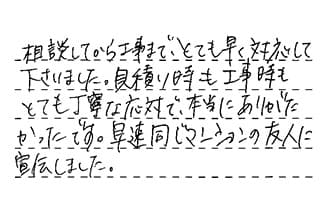 相談してから工事まで、とても早く対応して
下さいました。見積り時も工事時も
とても丁寧な応対で、本当にありがた
かったです。早速同じマンションの友人に
宣伝しました。